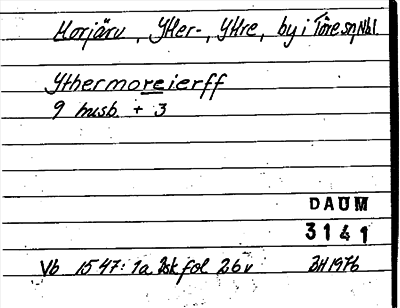 Morjärv, Ytter-, Yttre, by i Töre sn, Nbl.
Ythermoreierff
9 husb. + 3
DAUM
3141
Vb 1547: 1a Dsk fol 26 v BH 1976